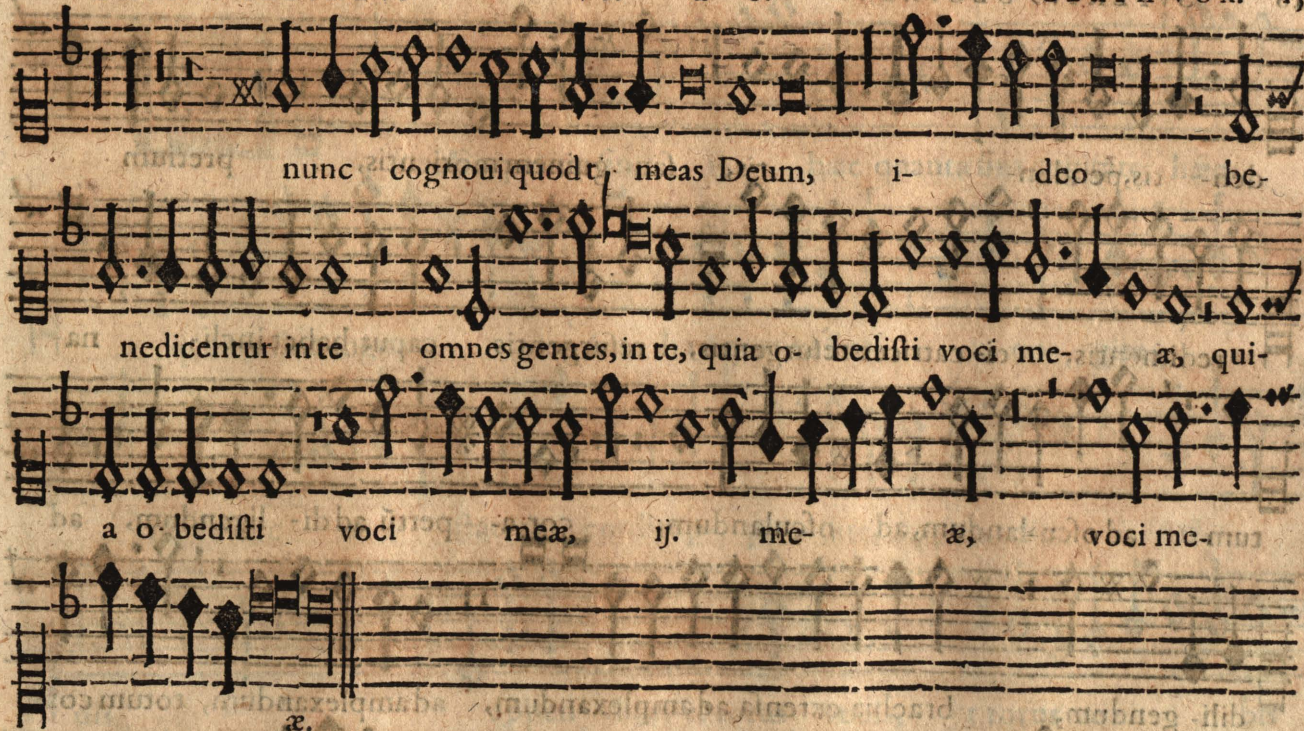 nunc cognoui quod t meas Deum, i- deo be-
nedicentur in te omnes gentes, in te, quia o- bediſti voci me- æ, qui-
a o- bediſti voci meæ, ij. me- æ, voci me-
æ.